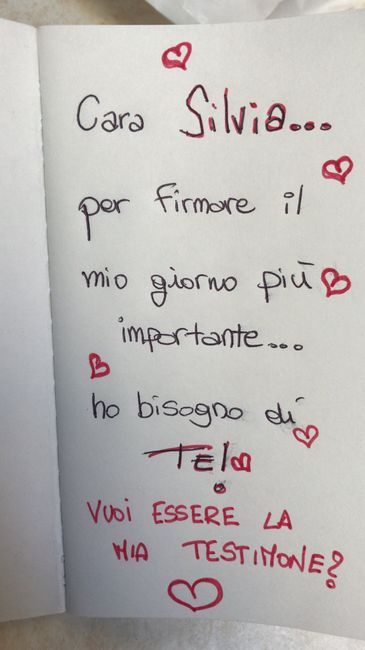 Cara Silvia...
per firmare il
mio giorno più
importante...
ho bisogno di
TE!
VUOI ESSERE LA
MIA TESTIMONE?